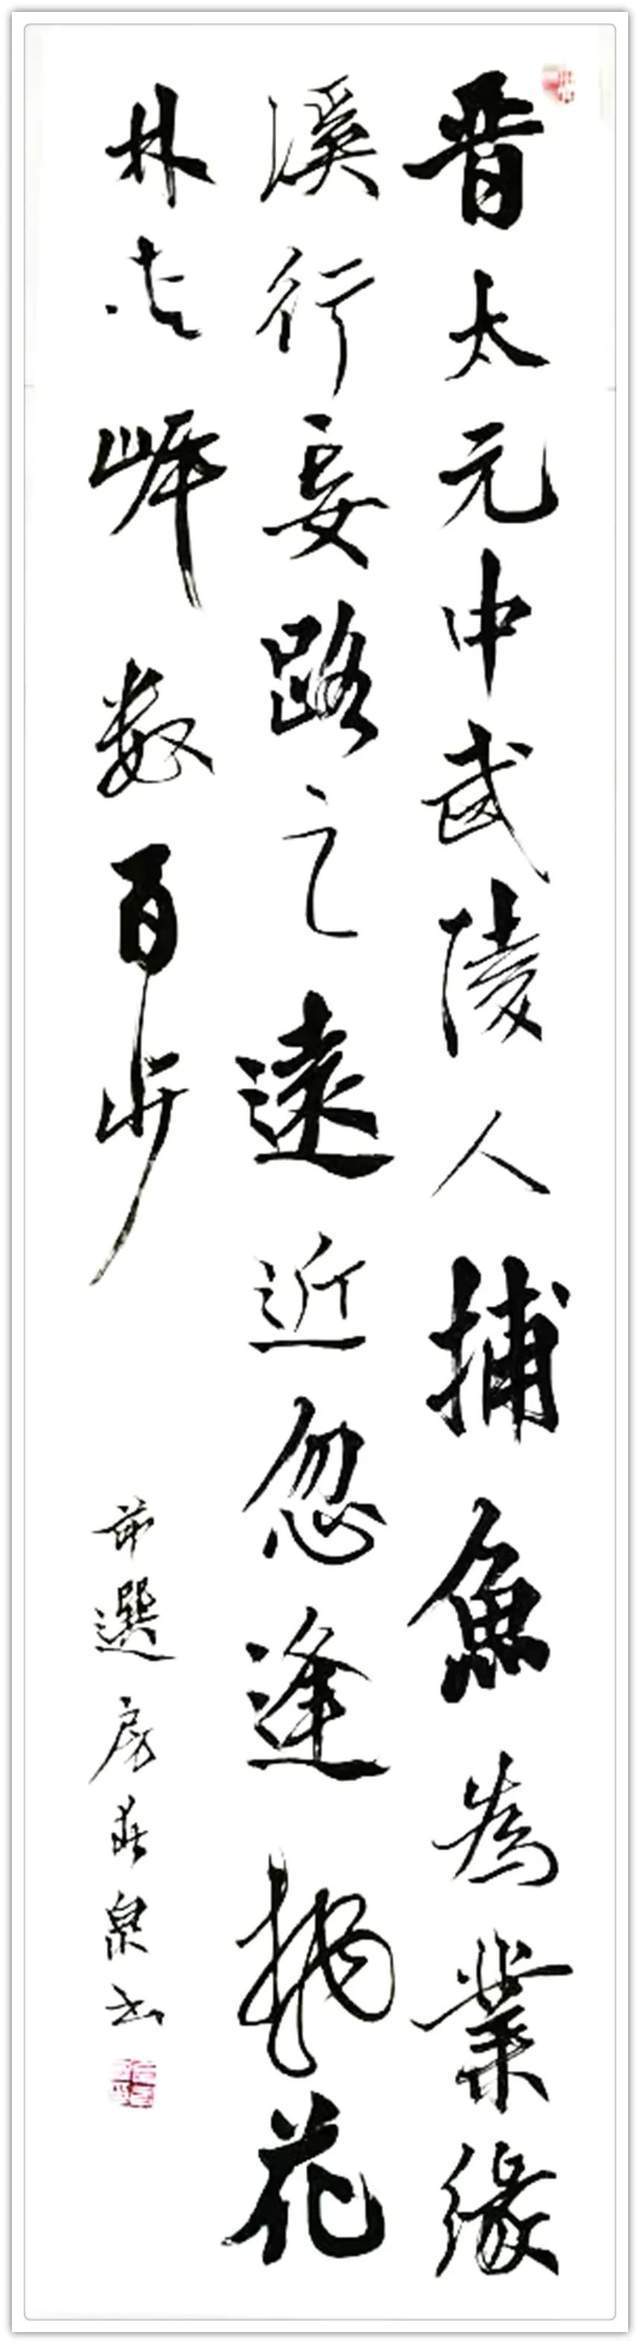 晋太元中武陵人捕魚為業緣
溪行妄路之遠近忽逢桃花
林夹岸数百步
节選 房莊泉书